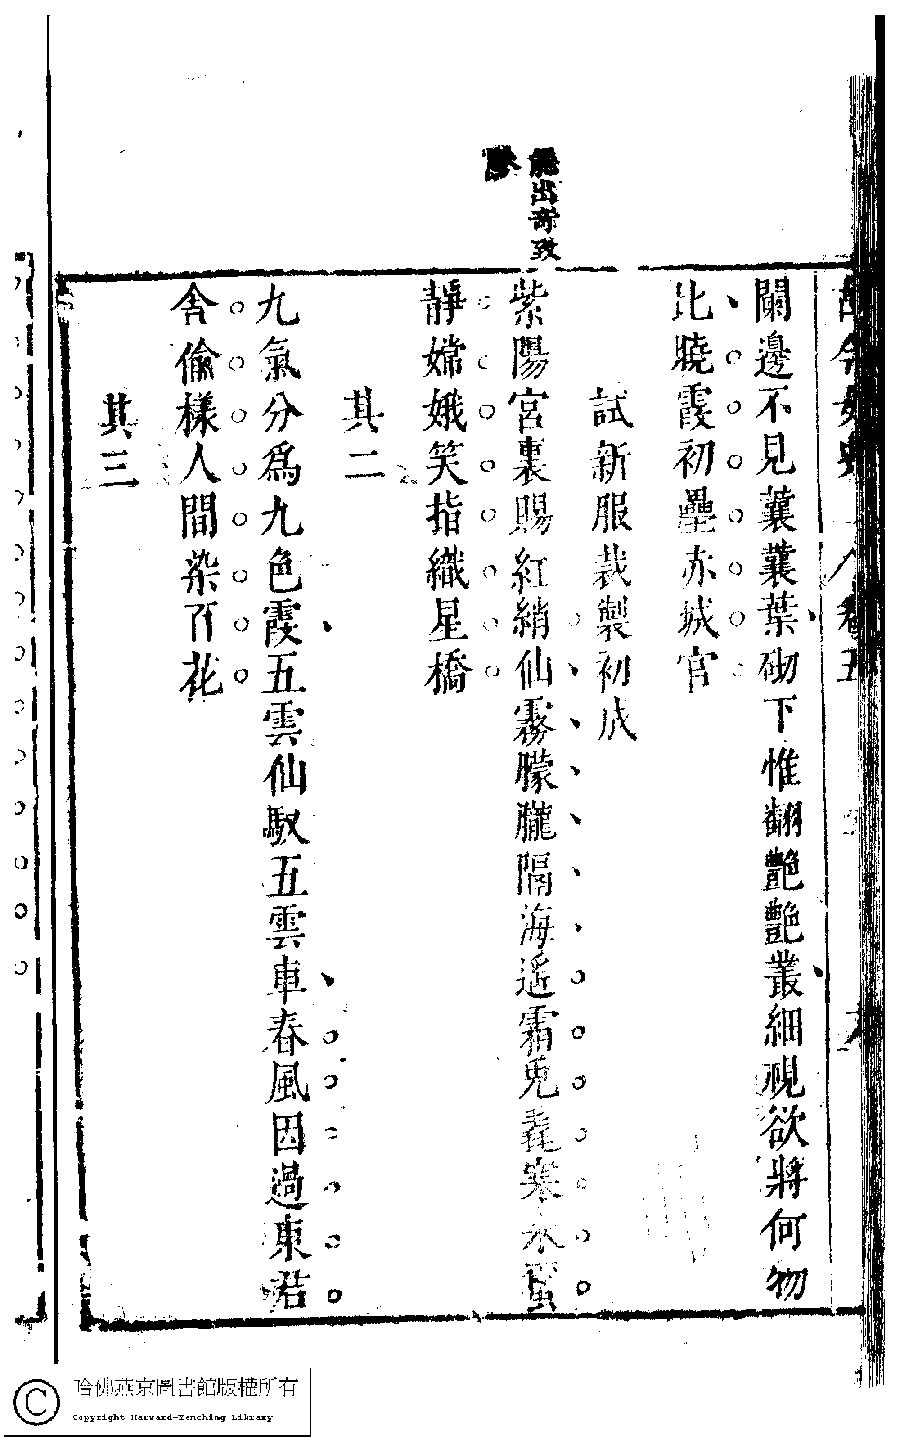 能出奇致
闌邊不見蘘蘘葉砌下惟翻艷艷叢細視欲將何物
比曉霞初壘赤城宮
試新服裁製初成
紫陽宮裏賜紅綃仙霧朦朧隔海遥霜兎毳寒氷蠶
靜嫦娥笑指織星橋
其二
九氣分爲九色霞五雲仙馭五雲車春風因過東君
舍偷樣人間染百花
其三
哈佛燕京圖書館版權所有
Copyright Harvard-Yenching Library